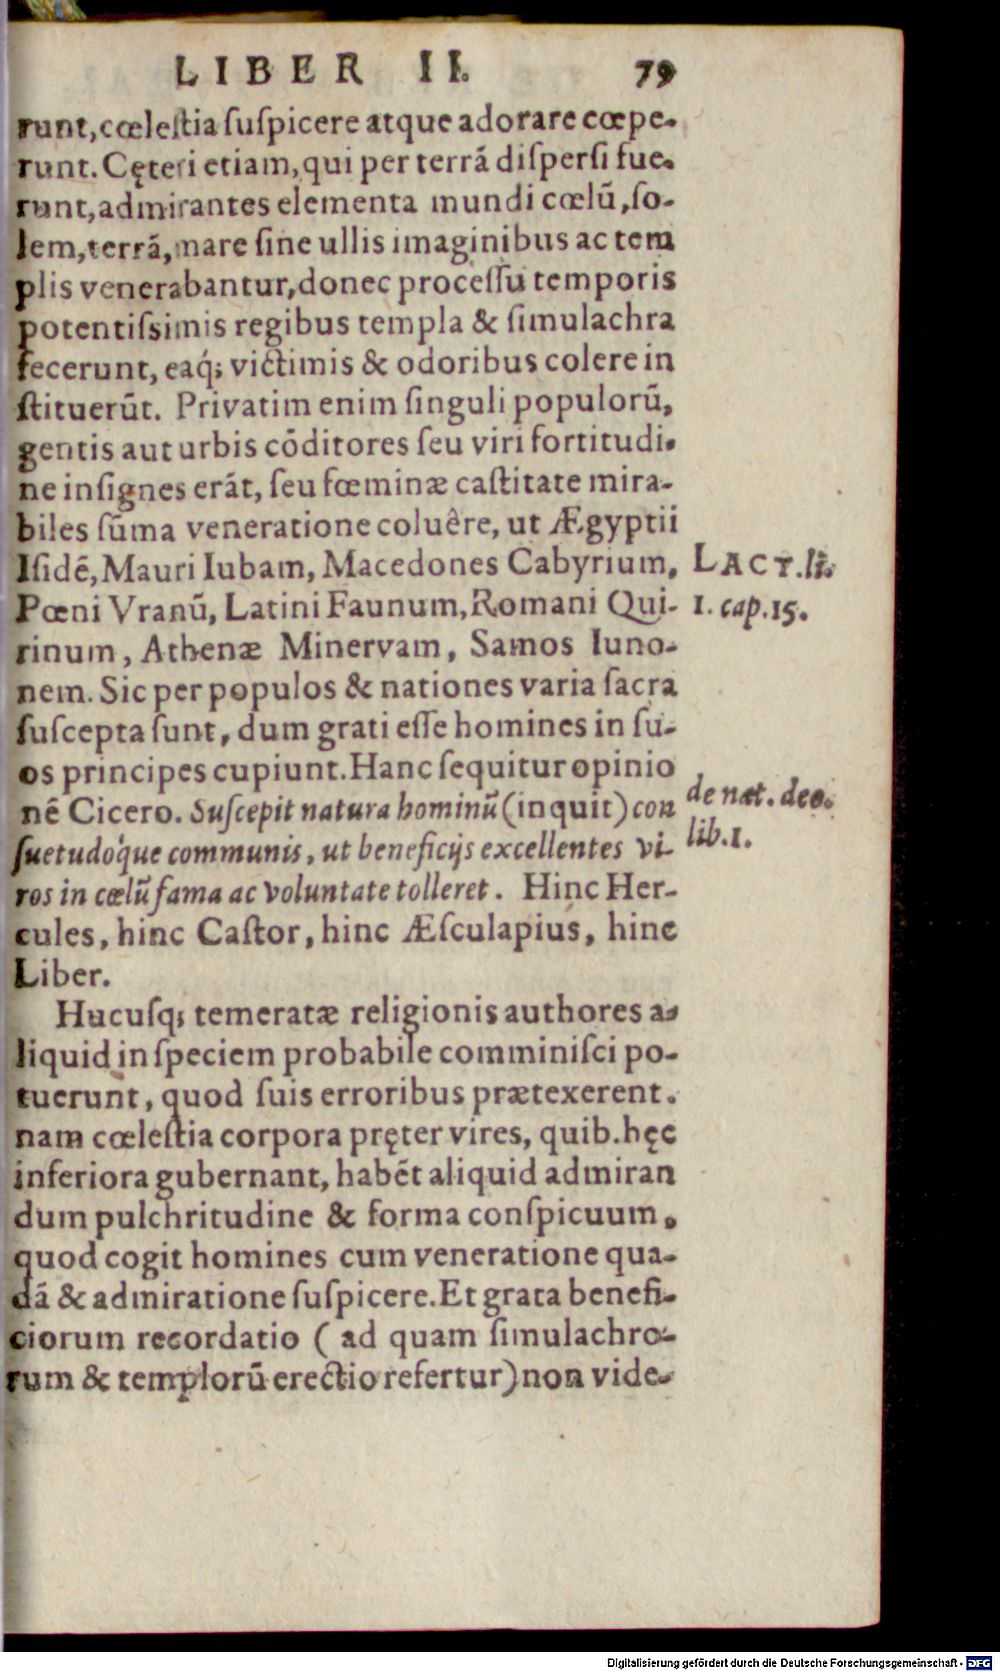 LIBER II. 79
runt, cœlestia ſuſpicere atque adorare cœpe-
runt. Cęteri etiam, qui per terrá diſperſi fue-
runt, admirantes elementa mundi cœlũ, ſo-
lem, terrã, mare ſine ullis imaginibus ac tem
plis venerabantur, donec proceſſu temporis
potentiſsimis regibus templa & ſimulachra
fecerunt, eaq́; victimis & odoribus colere in
ſtituerūt. Privatim enim ſinguli populorū,
gentis aut urbis cōditores ſeu viri fortitudi-
ne inſignes erát, ſeu fœminæ caſtitate mira-
biles ſũma veneratione coluêre, ut Ægyptii
Iſidē, Mauri Iubam, Macedones Cabyrium,
Pœni Vranũ, Latini Faunum, Romani Qui-
rinum, Athenæ Minervam, Samos Iuno-
nem. Sic per populos & nationes varia ſacra
ſuſcepta ſunt, dum grati eſſe homines in ſu-
os principes cupiunt. Hanc ſequitur opinio
nē Cicero. Suſcepit natura hominũ (inquit) con
ſuetudóque communis, ut beneficijs excellentes vi-
ros in cœlũ fama ac voluntate tolleret. Hinc Her-
cules, hinc Caſtor, hinc Æſculapius, hinc
Liber.
Hucuſq; temeratæ religionis authores a-
liquid in ſpeciem probabile comminiſci po-
tuerunt, quod ſuis erroribus prætexerent.
nam cœleſtia corpora pręter vires, quib. hęc
inferiora gubernant, habēt aliquid admiran
dum pulchritudine & forma conſpicuum,
quod cogit homines cum veneratione qua-
dá & admiratione ſuſpicere. Et grata benefi-
ciorum recordatio ( ad quam ſimulachro-
rum & templorũ erectio refertur) non vide-
LACT. li.
1. cap. 15.
de nat. deo.
lib. 1.
Digitalisierung gefördert durch die Deutsche Forschungsgemeinschaft - DFG